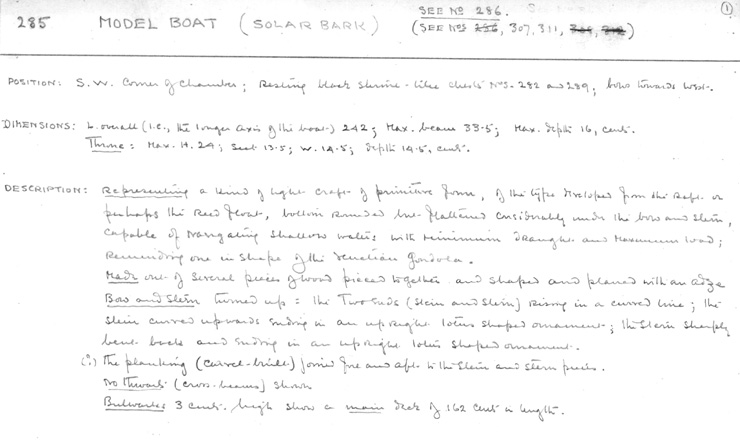 285 MODEL BOAT (SOLAR BARK) SEE Nº 286. (1)
(SEE Nºs 286, 307, 311, 309, 312)
POSITION: S.W. Corner of Chamber; Resting black shrine-like chests Nos. 282 and 289; bow towards West.
DIMENSIONS: L. overall (i.e., the longer axis of the boat) 242; Max. beam 33.5; Max. depth 16, cents.
Throne: Max. H. 24; Seat 13.5; W. 14.5; depth 14.5, cents.
DESCRIPTION: Representing a kind of light craft of primitive form, of the type developed from the Raft or
perhaps the Reed float, bottom rounded but flattened considerably under the bow and stern,
capable of navigating shallow waters with minimum draught and maximum load;
Reminding one in shape of the Venetian Gondola.
Made out of several pieces of wood pieced together and shaped and planed with an adze
Bow and Stern turned up: the Two Ends (Stem and Stern) Rising in a curved line; the
Stem curved upwards ending in an upright lotus shaped ornament; the Stern sharply
bent back and ending in an upright lotus shaped ornament.
(?) The planking (carvel-built) joined fore and aft to the Stem and Stern pieces.
No Thwarts (cross-beams) shown
Bulwarks 3 cents. high show a main deck of 162 cents in length.